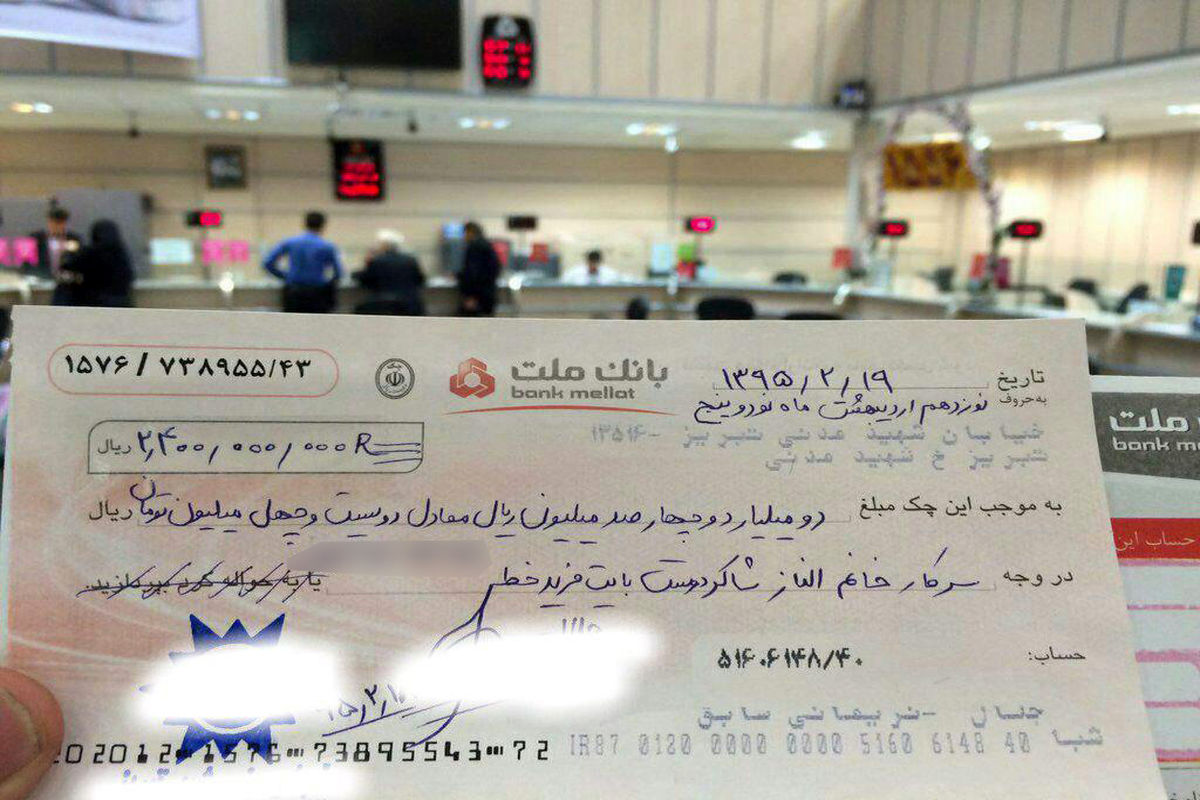 ۱۵۷۶/۷۳۸۹۵۵/۴۳
بانک ملت
bank mellat
تاریخ ۱۳۹۵/۲/۱۹
به‌حروف نوزدهم اردیبهشت ماه نود و پنج
خیابان شهید مدنی تبریز -۱۳۵۱۶
تبریز خ شهید مدنی
۲,۴۰۰,۰۰۰,۰۰۰R ریال
به موجب این چک مبلغ دو میلیارد و چهارصد میلیون ریال معادل دویست و چهل میلیون تومان ریال
در وجه سرکار خانم الناز شاکردوست بابت خرید خط
یا به حواله کرد بپردازید.
حساب: ۵۱۶۰۶۱۴۸/۴۰
۹۵/۲/
جمال -نریمانی سابق
شبا IR87 0120 0000 0000 5160 6148 40
202012 1576 73895543 72
ملت
bank me
حساب این